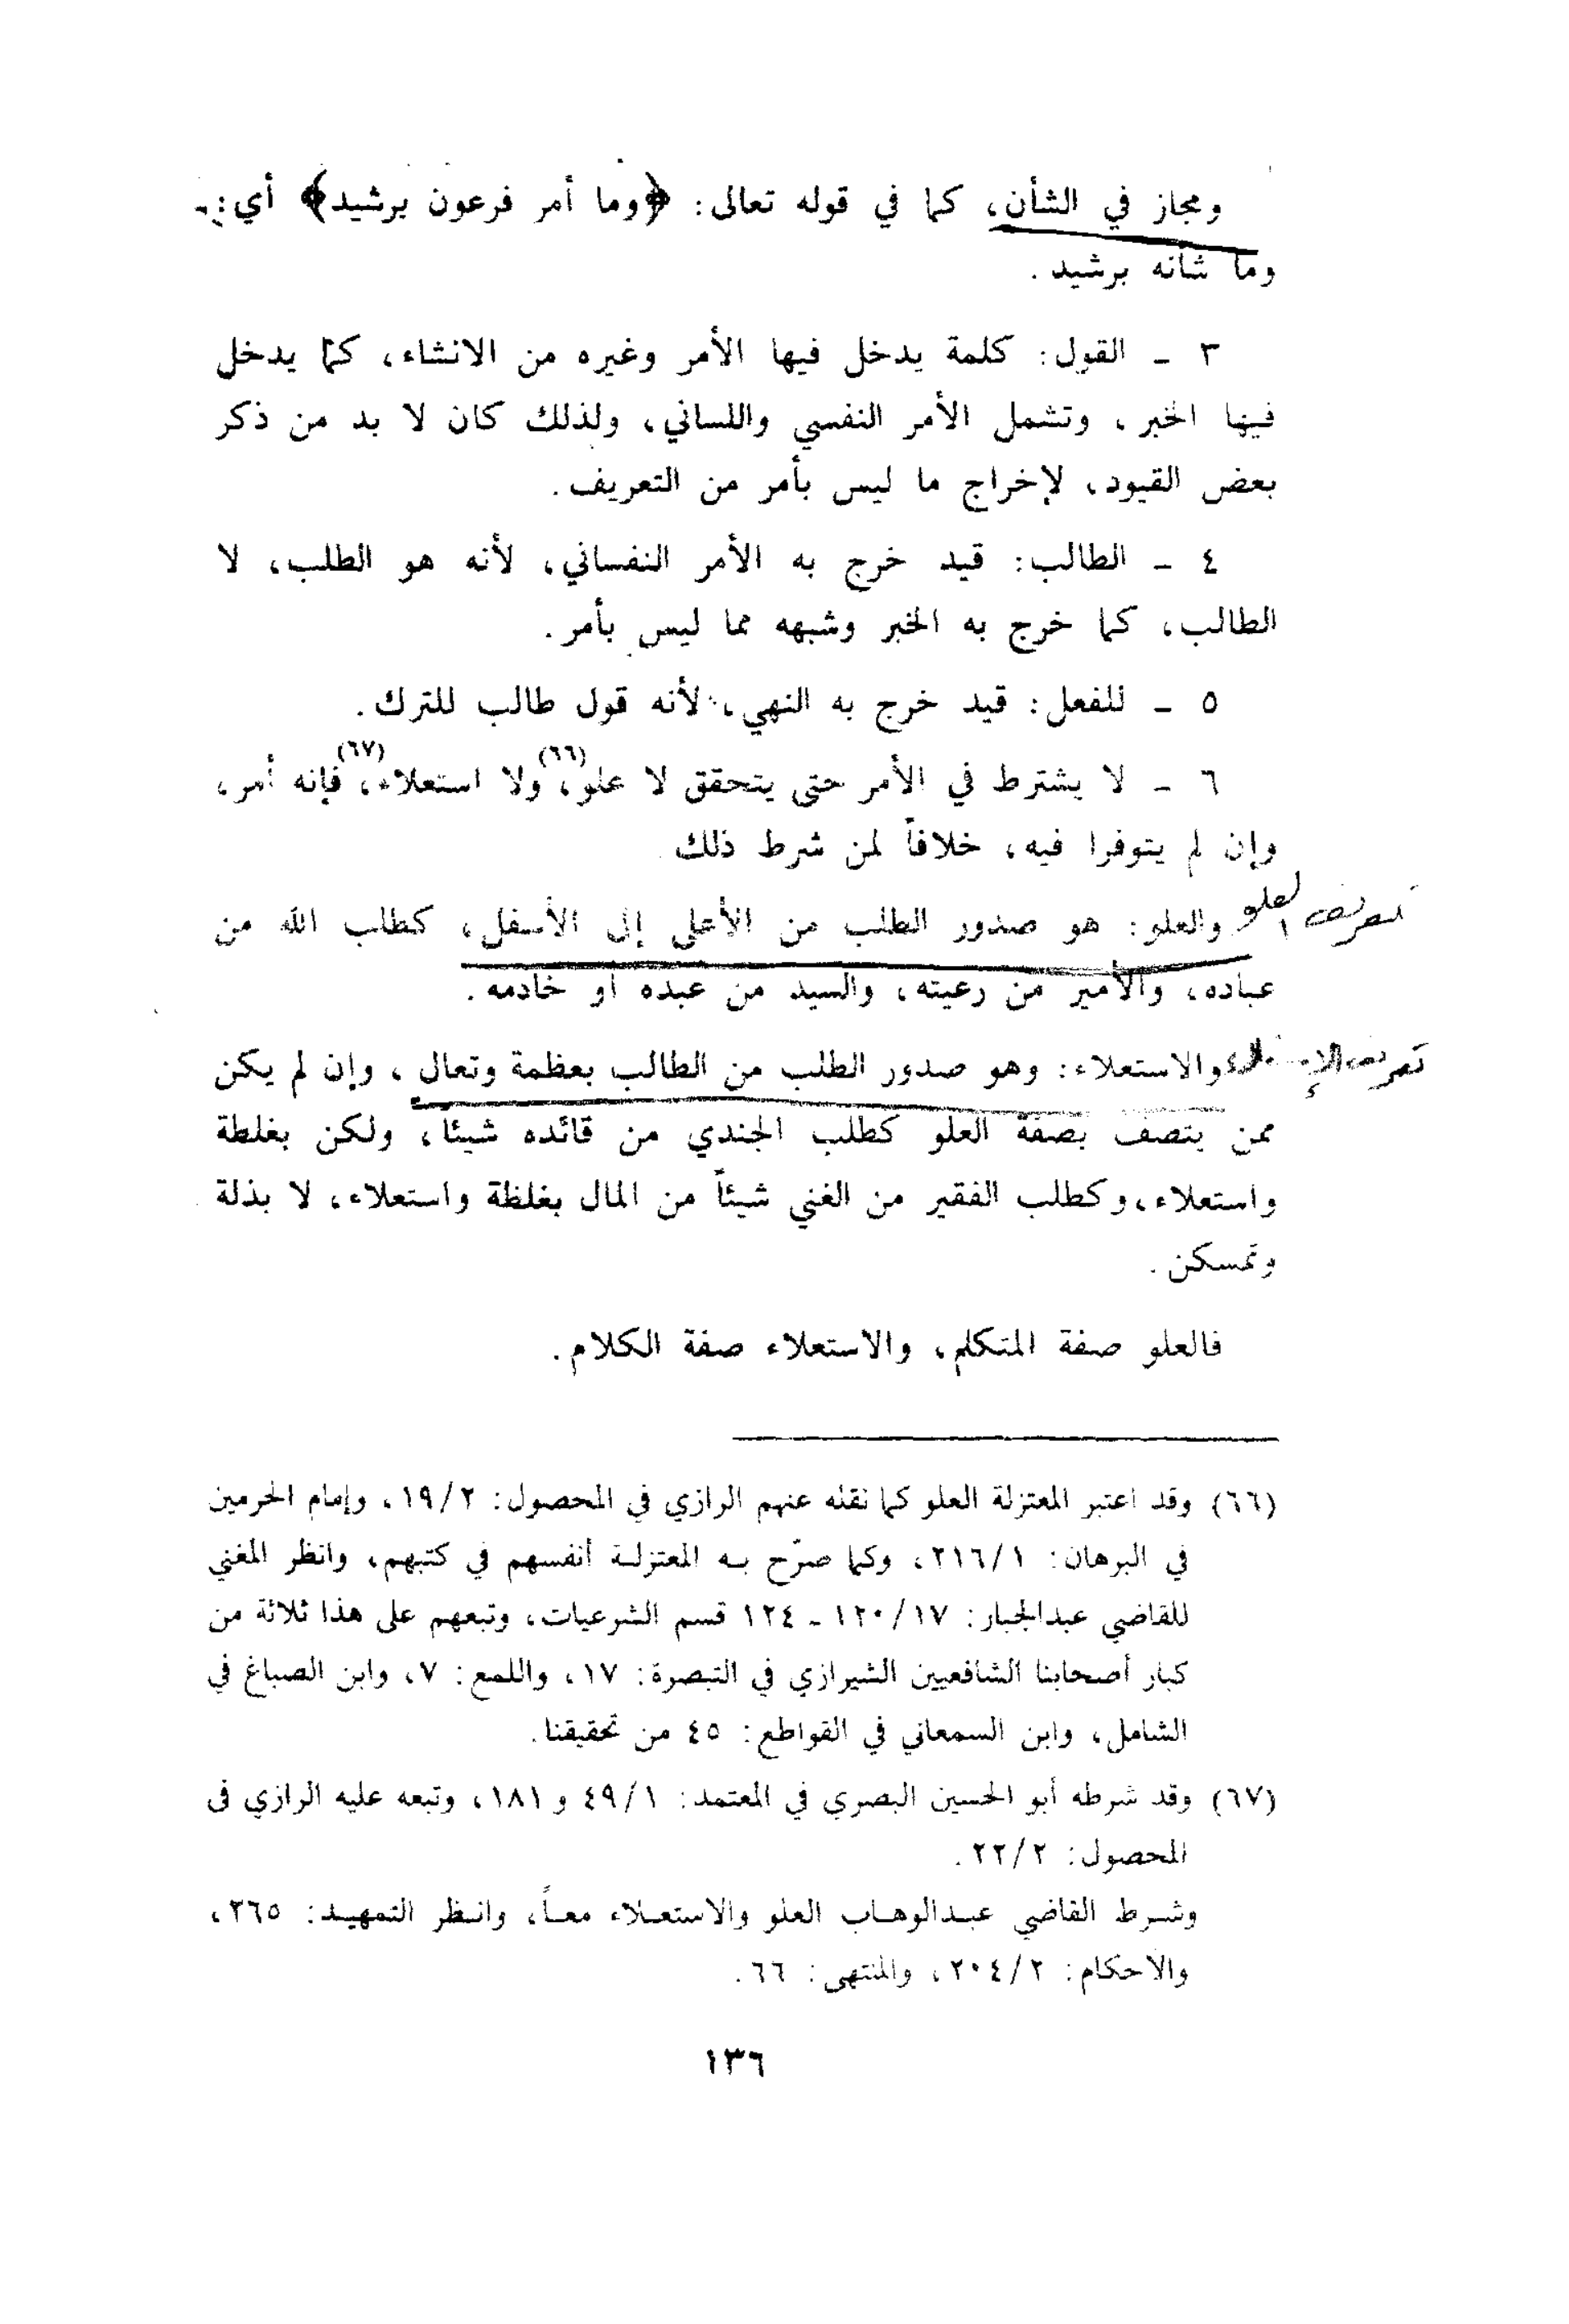 ومجاز في الشأن، كما في قوله تعالى: ﴿وما أمر فرعون برشيد﴾ أي:
وما شأنه برشيد.
٣ - القول: كلمة يدخل فيها الأمر وغيره من الانشاء، كما يدخل
فيها الخبر، وتشمل الأمر النفسي واللساني، ولذلك كان لا بد من ذكر
بعض القيود، لإخراج ما ليس بأمر من التعريف.
٤ - الطالب: قيد خرج به الأمر النفساني، لأنه هو الطلب، لا
الطالب، كما خرج به الخبر وشبهه مما ليس بأمر.
٥ - للفعل: قيد خرج به النهي، لأنه قول طالب للترك.
٦ - لا يشترط في الأمر حتى يتحقق لا علو،(٦٦) ولا استعلاء،(٦٧) فإنه أمر،
وإن لم يتوفرا فيه، خلافاً لمن شرط ذلك
تعريف العلو
والعلو: هو صدور الطلب من الأعلى إلى الأسفل، كطلب الله من
عباده، والأمير من رعيته، والسيد من عبده أو خادمه.
تعريف الإستعلاء
والاستعلاء: وهو صدور الطلب من الطالب بعظمة وتعال، وإن لم يكن
ممن يتصف بصفة العلو كطلب الجندي من قائده شيئاً، ولكن بغلظة
واستعلاء، وكطلب الفقير من الغني شيئاً من المال بغلظة واستعلاء، لا بذلة
وتمسكن.
فالعلو صفة المتكلم، والاستعلاء صفة الكلام.
(٦٦) وقد اعتبر المعتزلة العلو كما نقله عنهم الرازي في المحصول: ١٩/٢، وإمام الحرمين
في البرهان: ٢١٦/١، وكما صرّح به المعتزلة أنفسهم في كتبهم، وانظر المغني
للقاضي عبدالجبار: ١٢٠/١٧ - ١٢٤ قسم الشرعيات، وتبعهم على هذا ثلاثة من
كبار أصحابنا الشافعيين الشيرازي في التبصرة: ١٧، واللمع: ٧، وابن الصباغ في
الشامل، وابن السمعاني في القواطع: ٤٥ من تحقيقنا.
(٦٧) وقد شرطه أبو الحسين البصري في المعتمد: ٤٩/١ و ١٨١، وتبعه عليه الرازي في
المحصول: ٢٢/٢.
وشرط القاضي عبدالوهاب العلو والاستعلاء معاً، وانظر التمهيد: ٢٦٥،
والاحكام: ٢٠٤/٢، والمنتهى: ٦٦.
١٣٦